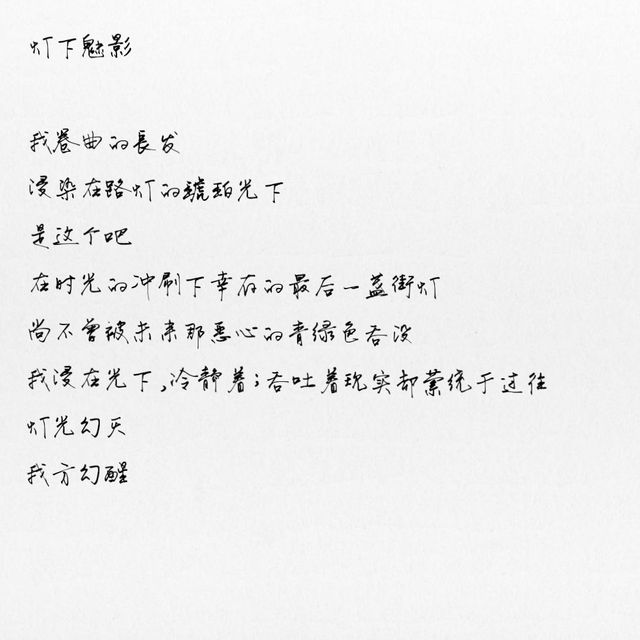 灯下魅影
我卷曲的長发
浸染在路灯的琥珀光下
是这个吧
在时光的冲刷下幸存的最后一盏街灯
尚不曾被未来那恶心的青绿色吞没
我浸在光下,冷静着;吞吐着现实却萦绕于过往
灯光幻灭
我方幻醒